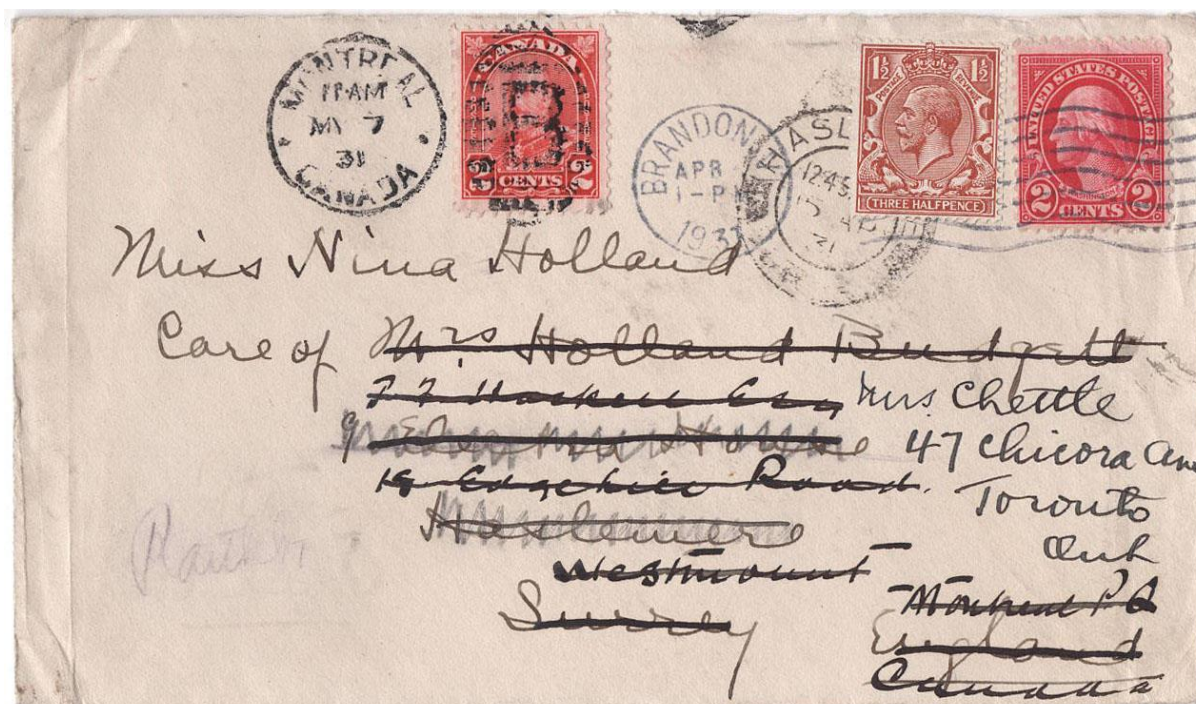 MONTREAL
11 AM
MY 7
31
CANADA
CANADA
2 CENTS 2
BRANDON
APR
1-P
193
HASL
12.45
31
1½ 1½
POSTAGE REVENUE
THREE HALFPENCE
UNITED STATES POSTAGE
2 CENTS 2
Miss Nina Holland
Care of Mrs Holland Budgett
Mrs. Chettle
House
47 Chicora Ave
19 Edgehill Road.
Toronto
Haslemere
Ont
Westmount
Montreal P Q
Surrey
England
Canada